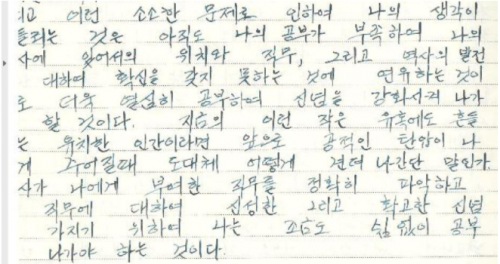 고 이런 소소한 문제로 인하여 나의 생각이
들리는 것은 아직도 나의 공부가 부족하여 나의
사에 있어서의 위치와 직무, 그리고 역사의 발전
대하여 확신을 갖지 못하는 것에 연유하는 것이
로 더욱 열심히 공부하여 신념을 강화시켜 나가
할 것이다. 지금의 이런 작은 유혹에도 흔들
는 유치한 인간이라면 앞으로 공적인 탄압이 나
게 주어질때 도대체 어떻게 견뎌 나간단 말인가.
사가 나에게 부여한 직무를 정확히 파악하고
직무에 대하여 신성한 그리고 확고한 신념
가지기 위하여 나는 조금도 쉼없이 공부
나가야 하는 것이다.